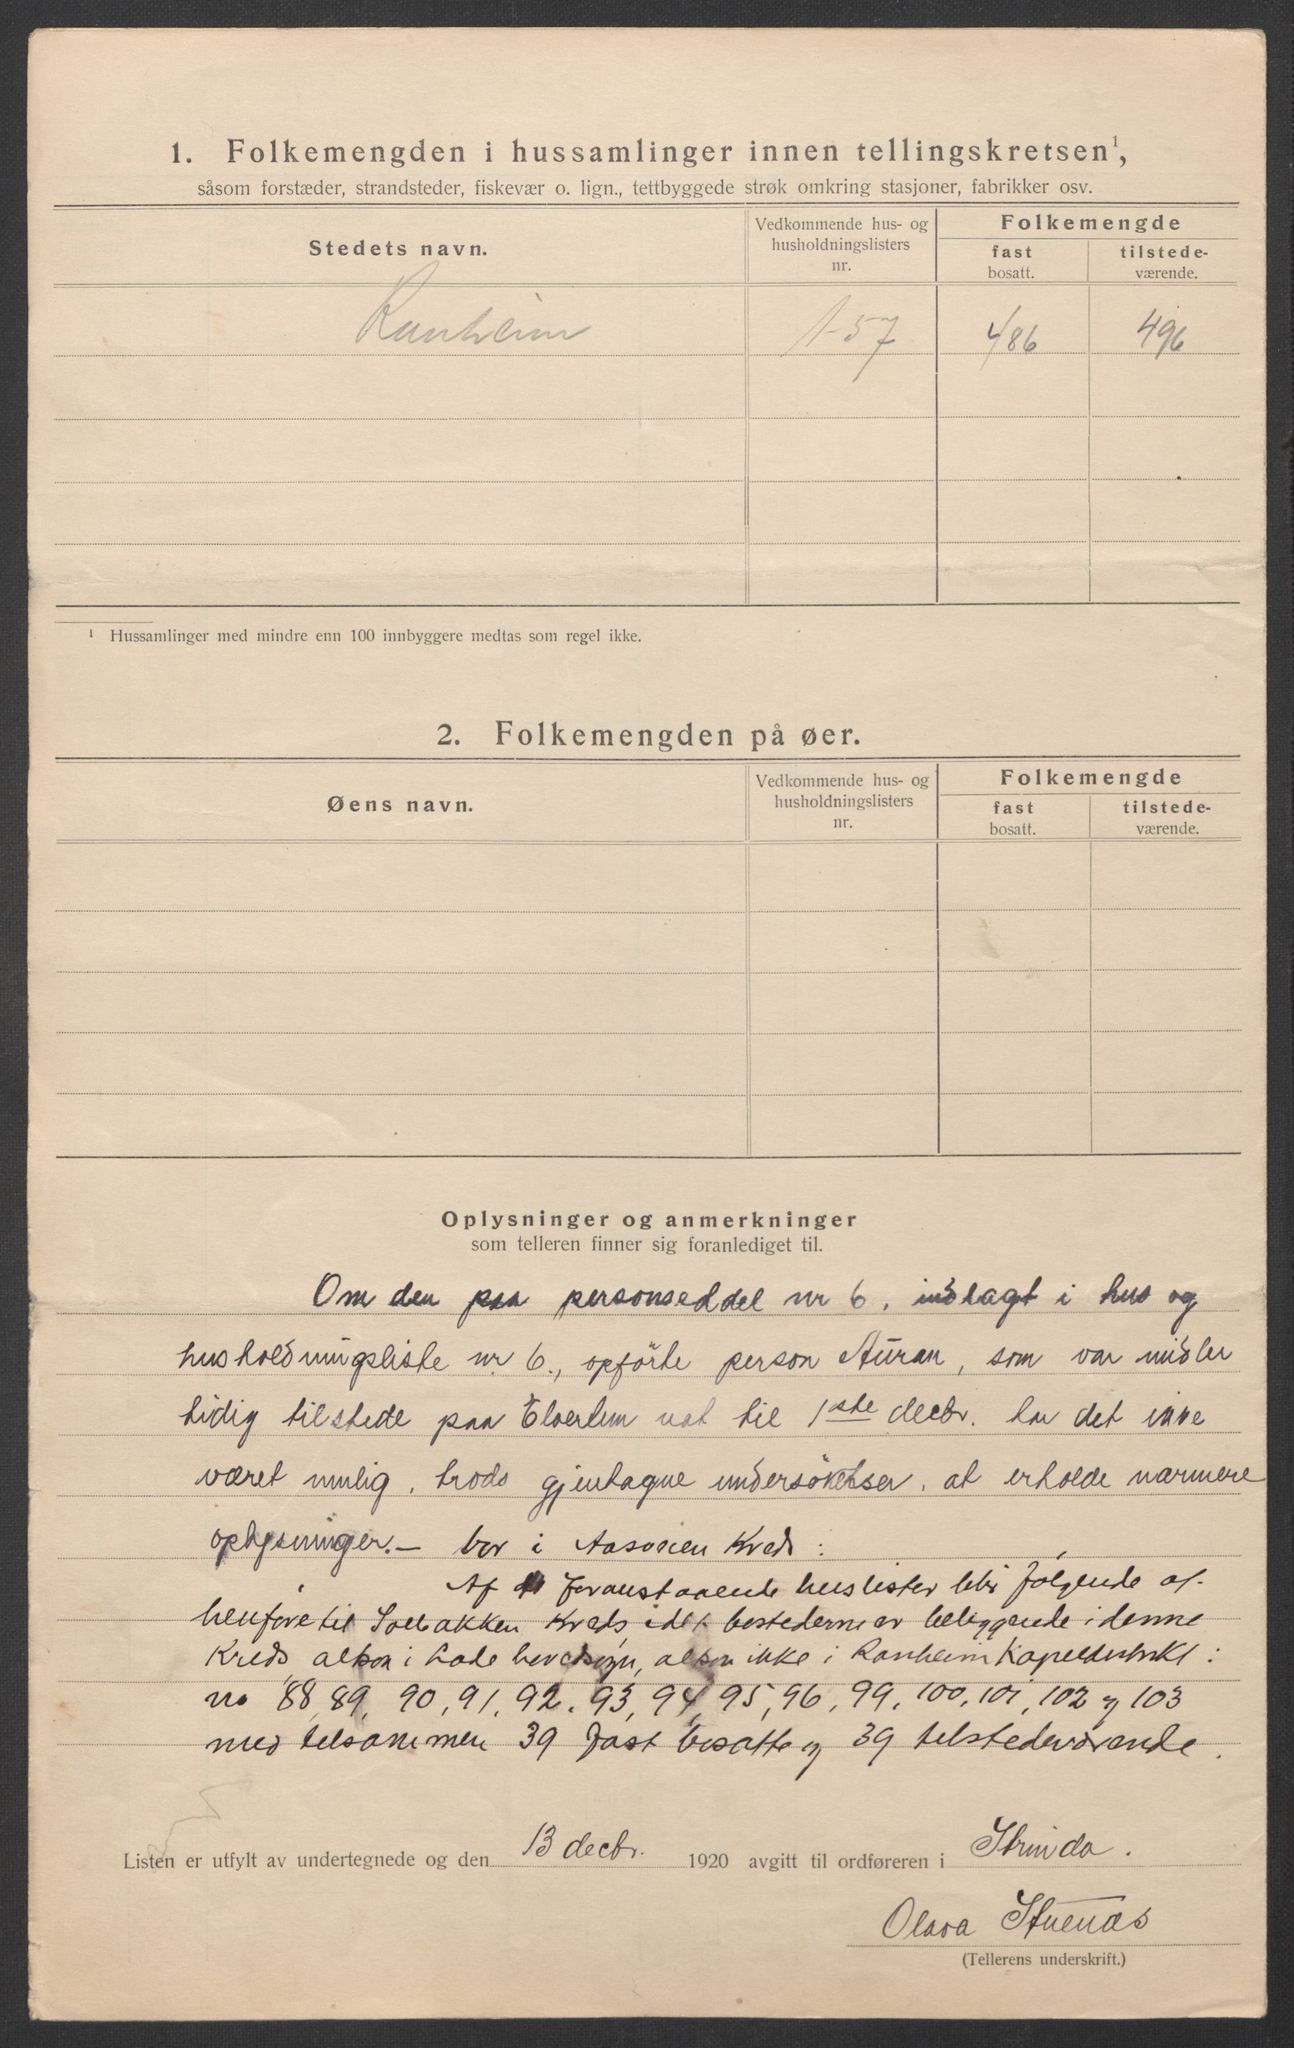 1. Folkemengden i hussamlinger innen tellingskretsen¹,
såsom forstæder, strandsteder, fiskevær o. lign., tettbyggede strøk omkring stasjoner, fabrikker osv.
Stedets navn.
Vedkommende hus- og
husholdningslisters
nr.
Folkemengde
fast
bosatt.
tilstede-
værende.
Ranheim 1-57 486 496
¹ Hussamlinger med mindre enn 100 innbyggere medtas som regel ikke.
2. Folkemengden på øer.
Øens navn.
Vedkommende hus- og
husholdningslisters
nr.
Folkemengde
fast
bosatt.
tilstede-
værende.
Oplysninger og anmerkninger
som telleren finner sig foranlediget til.
Om den paa personseddel nr 6, indlagt i hus og
husholdningsliste nr 6., opførte person Auran, som var midler
tidig tilstede paa nat til 1ste decbr. har det ikke
været mulig, trods gjentagne undersøkelser, at erholde nærmere
oplysninger.— bor i Kreds:
Af foranstaaende huslister blir følgende at
henføre til Solbakken Kreds, bostederne er beliggende i denne
Kreds, altsaa i Lade hovedsogn, altsaa ikke i Ranheim Kapeldistrikt:
no 88, 89, 90, 91, 92, 93, 94, 95, 96, 99, 100, 101, 102 og 103
med tilsammen 39 fast bosatte og 39 tilstedeværende.
Listen er utfylt av undertegnede og den 13 decbr. 1920 avgitt til ordføreren i Strinda.
Olava Stuenæs
(Tellerens underskrift.)